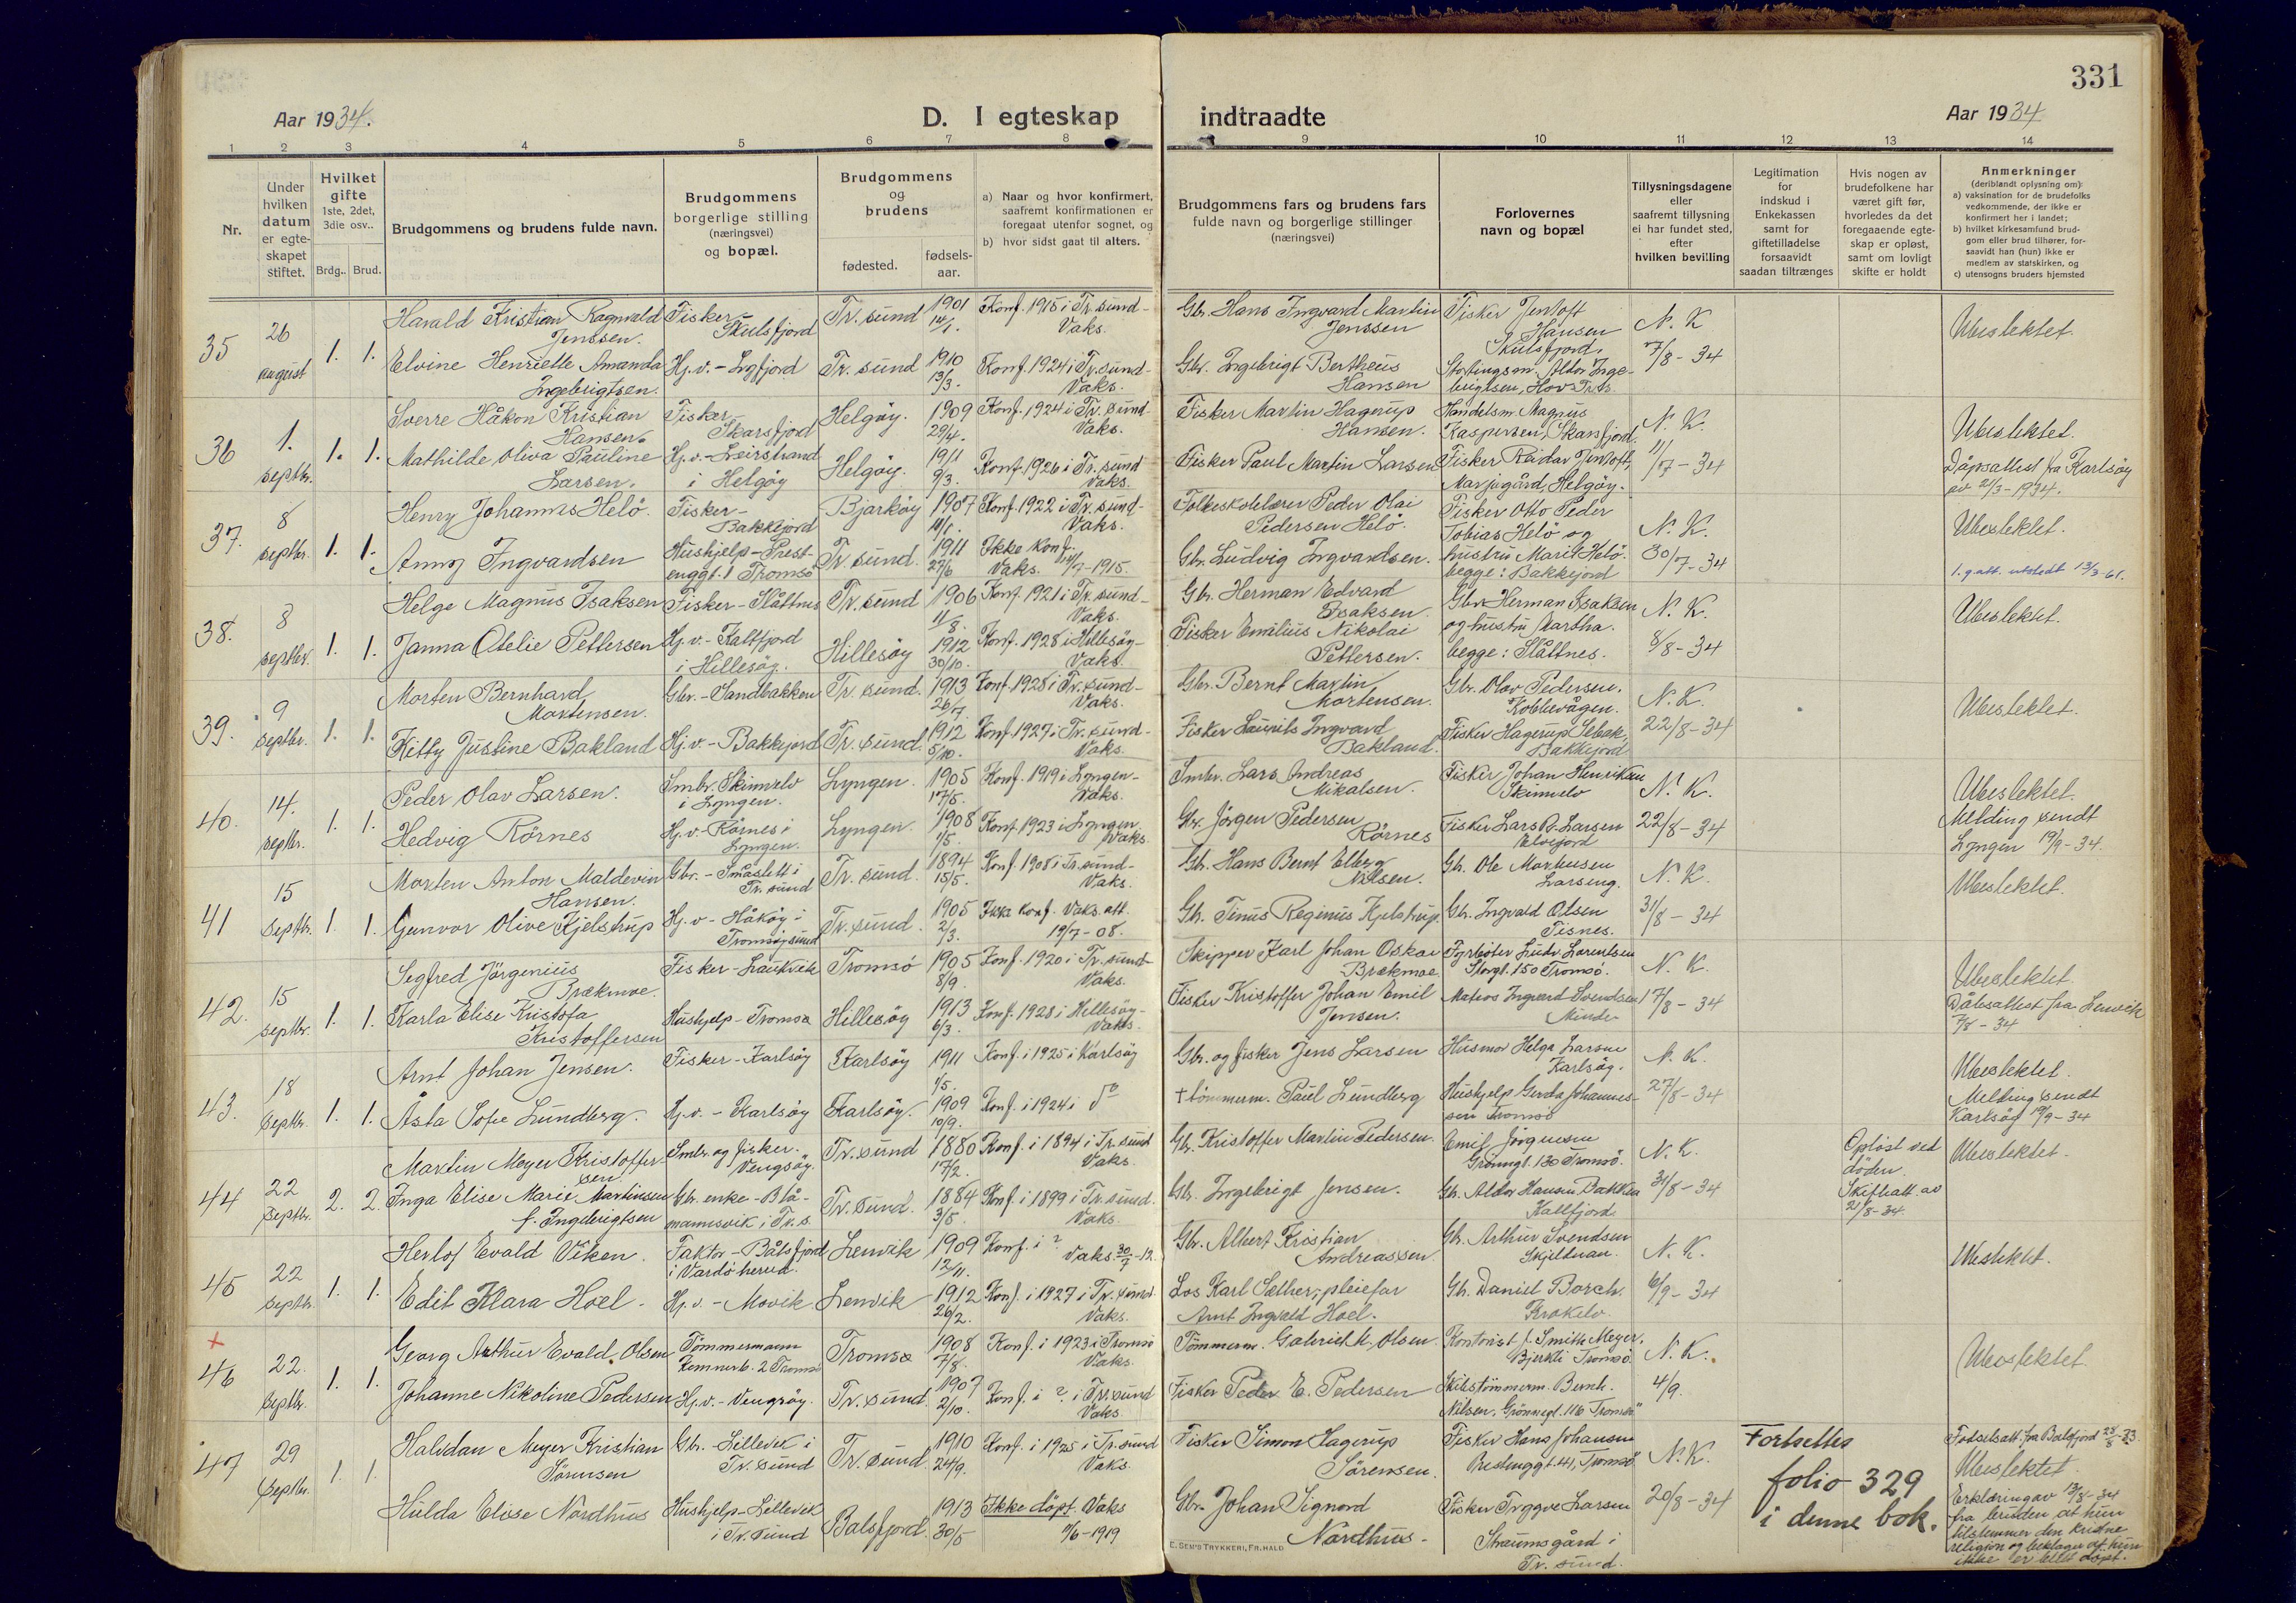 331
Aar 1934.
D. I egteskap indtraadte
Aar 1934
1 2 3 4 5 6 7 8 9 10 11 12 13 14
Nr.
Under hvilken datum er egteskapet stiftet.
Hvilket gifte 1ste, 2det, 3die osv..
Brdg.. Brud.
Brudgommens og brudens fulde navn.
Brudgommens borgerlige stilling (næringsvei) og bopæl.
Brudgommens og brudens
fødested.
fødsels-aar.
a) Naar og hvor konfirmert, saafremt konfirmationen er foregaat utenfor sognet, og
b) hvor sidst gaat til alters.
Brudgommens fars og brudens fars fulde navn og borgerlige stillinger (næringsvei)
Forlovernes navn og bopæl
Tillysningsdagene eller saafremt tillysning ei har fundet sted, efter hvilken bevilling
Legitimation for indskud i Enkekassen samt for giftetilladelse forsaavidt saadan tiltrænges
Hvis nogen av brudefolkene har været gift før, hvorledes da det foregaaende egteskap er opløst, samt om lovligt skifte er holdt
Anmerkninger (deriblandt oplysning om):
a) vaksination for de brudefolks vedkommende, der ikke er konfirmert her i landet;
b) hvilket kirkesamfund brudgom eller brud tilhører, forsaavidt han (hun) ikke er medlem av statskirken, og
c) utensogns bruders hjemsted
35 26 august 1. 1.
Harald Kristian Ragnvald Jenssen. Fisker - Skulsfjord Tr. sund 1901 14/1. Konf. 1915 i Tr. sund - Vaks. Gbr. Hans Ingvard Martin Jenssen Fisker Jentoft Hansen Skulsfjord. N. K. 7/8 - 34 Ubeslektet.
Elvine Henriette Amanda Ingebrigtsen. Hj. v. - Tr. sund 1910 13/3. Konf. 1924 i Tr. sund - Vaks. Gbr. Ingebrigt Bertheus Hansen Stortingsm. Aldor Ingebrigtsen,
36 1. septbr. 1. 1.
Sverre Håkon Kristian Hansen. Fisker Skarsfjord Helgøy. 1909 29/4. Konf. 1924 i Tr. sund - Vaks. Fisker Martin Hagerup Hansen. Handelsm. Magnus Kaspersen, Skarsfjord. N. K. 11/7 - 34 Ubeslektet.
Mathilde Oliva Pauline Larsen. Hj. v. - Leirstrand i Helgøy Helgøy. 1911 9/3. Konf. 1926 i Tr. sund Vaks. Fisker Paul Martin Larsen Fisker Reidar Jentoft, Marjagård, Helgøy. Dåpsattest fra Karlsøy av 21/3 - 1934.
37. 8 septbr. 1. 1.
Henry Johannes Helø. Fisker - Bakkejord Bjarkøy 1907 11/1. Konf. 1922 i Tr. sund - Vaks. Folkeskolelærer Peder Olai Pedersen Helø. Fisker Otto Peder Tobias Helø og hustru Marit Helø. begge: Bakkejord N. K. 30/7 - 34 Ubeslektet.
Anny Ingvardsen Hushjelp - Prestenggt. 1 Tromsø Tr. sund. 1911 27/6 Ikke konf. Vaks. 14/7 - 1915. Gbr. Ludvig Ingvardsen. 1. g. att. utstedt 13/3-61.
38. 8 septbr. 1. 1.
Helge Magnus Isaksen Fisker - Slåttnes Tr. sund 1906 11/8. Konf. 1921 i Tr. sund - Vaks. Gbr. Herman Edvard Isaksen. Gbr Herman Isaksen og hustru Martha. begge: Slåttnes. N. K. 8/8 - 34 Ubeslektet.
Janna Otelie Pettersen Hj. v. - Kaltfjord i Hillesøy. Hillesøy 1912 30/10. Konf. 1928 i Hillesøy - Vaks. Fisker Emilius Nikolai Pettersen.
39. 9 septbr. 1. 1.
Morten Bernhard Mortensen. Gbr. - Sandbakken Tr. sund. 1913 26/7 Konf. 1928 i Tr. sund - Vaks. Gbr. Bernt Martin Mortensen. Gbr. Olav Pedersen. Kobbevågen. N. K. 22/8 - 34 Ubeslektet.
Kitty Justine Bakland Hj. v. - Bakkejord Tr. sund. 1912 5/10. Konf. 1927 i Tr. sund - Vaks. Fisker Laurits Ingvard Bakland. Fisker Hagerup Bakkejord.
40. 14. septbr. 1. 1.
Peder Olav Larsen. Smbr. Skinnelv i Lyngen. Lyngen. 1905 17/5. Konf. 1919 i Lyngen - Vaks. Smbr. Lars Andreas Mikalsen. Fisker Johan Henriksen Skinnelv N. K. 22/8 - 34 Ubeslektet.
Hedvig Rørnes Hj. v. - Rørnes i Lyngen. Lyngen. 1908 1/5. Konf. 1923 i Lyngen. Vaks. Gbr. Jørgen Pedersen Rørnes Fisker Lars B. Larsen Elvejord Melding sendt Lyngen 19/9 - 34.
41 15 septbr. 1. 1.
Morten Anton Maldevin Hansen. Gbr. - Småslett i Tr. sund Tr. sund. 1894 15/5. Konf. 1908 i Tr. sund - Vaks. Gb. Hans Bernt Elberg Nilsen. Gb. Ole Mortensen Larseng. N. K. 31/8 - 34 Ubeslektet.
Gunvor Olive Kjelstrup Hj. v - Håkøy i Tromsøysund Tr. sund. 1905 2/3. Ikke konf. Vaks. att. 19/7 - 08. Gb. Tinus Reginus Kjelstrup. Gb. Ingvald Olsen Tisnes.
42. 15 septbr. 1. 1.
Segfred Jørgenius Brækmoe. Fisker - Laukvik Tromsø 1905 8/9. Konf. 1920 i Tr. sund Vaks. Skipper Karl Johan Oskar Brækmoe Fyrbøter Ludv Lorentsen Storgt. 150 Tromsø. N. K. 17/8 - 34 Ubeslektet
Karla Elise Kristofa Kristoffersen Hushjelp - Tromsø Hillesøy 1913 6/3. Konf. 1928 i Hillesøy - Vaks. Fisker Kristoffer Johan Emil Jensen. Matros Ingvard Svendsen Minde Dåbsattest fra Lenvik 7/8 - 34
43. 18 septbr. 1. 1.
Arnt Johan Jensen. Fisker - Karlsøy Karlsøy 1911 1/5. Konf. i 1925 i Karlsøy Gbr. og fisker Jens Larsen Husmor Helga Larsen Karlsøy. N. K. 27/8 - 34 Ubeslektet.
Åsta Sofie Lundberg. Hj. v. - Karlsøy Karlsøy. 1909 10/9. Konf. i 1924 i do † tømmerm. Paul Lundberg Hushjelp Gerda Johannessen Tromsø Melding sendt Karlsøy 19/9 - 34
44 22 septbr. 2. 2.
Martin Meyer Kristoffersen. Smbr. og fisker. Vengsøy. Tr. sund 1880 17/2. Konf. i 1894 i Tr. sund Vaks. Gb. Kristoffer Martin Pedersen. Emil Jørgensen Grønnegt. 130 Tromsø. N. K. 31/8 - 34 Opløst ved døden. Skifteatt. av 21/8 - 34. Ubeslektet.
Inga Elise Marie Martinsen f. Ingebrigtsen Gb. enke - Blåmannsvik i Tr. s. Tr. sund. 1884 3/5. Konf. i 1899 i Tr. sund. Vaks. Gb. Ingebrigt Jensen. Gb. Aldor Hansen Bakken Kaltfjord.
45 22 septbr. 1. 1.
Herlof Evald Viken. Faktor - Båtsfjord i Vardø herred. Lenvik 1909 12/11. Konf. i ? Vaks. 30/7 - 12. Gb. Albert Kristian Andreassen Gb. Arthur Svendsen Skjelnan. N. K. 6/9 - 34 Ubeslektet.
Edit Klara Hoel. Hj. v. - Movik Lenvik 1912 26/2. Konf. i 1927 i Tr. sund. Vaks. Los Karl Sæther, pleiefar Arnt Ingvald Hoel. Gb. Daniel Borch. Krokelv.
x
46 22. septbr. 1. 1.
Georg Arthur Evald Olsen Tømmermann Kemnerb. 2 Tromsø Tromsø 1908 7/8. Konf. i 1923 i Tromsø Vaks. Tømmerm. Gabriel M. Olsen. Kontorist f. Smith Meyer. Bjerkli Tromsø. N. K. 4/9. Ubeslektet.
Johanne Nikoline Pedersen Hj. v. - Vengsøy. Tr. sund. 1907 2/10. Konf. i ? i Tr. sund Vaks. Fisker Peder E. Pedersen Skibstømmerm. Bernh. Nilsen. Grønnegt. 116 Tromsø
47 29 septbr. 1. 1.
Halvdan Meyer Kristian Sørensen Gb. - Lillevik i Tr. sund Tr. sund. 1910 24/9. Konf. i 1925 i Tr. sund Vaks. Fisker Simon Hagerup Sørensen. Fisker Hans Johansen Prestenggt. 41, Tromsø N. K. 20/8 - 34
Hulda Elise Nordhus Hushjelp - Lillevik i Tr. sund Balsfjord. 1913 30/5 Ikke døpt. Vaks 11/6 - 1919 Gbr. Johan Signord Nordhus - Fisker Tryggve Larsen Straumsgård i Tr. sund.
Fortsettes folio 329 i denne bok.
Fødselsatt. fra Balsfjord 28/8 - 33.
Ubeslektet.
Erklæring av 13/8 - 34 fra bruden at hun tilstemmer den kristne religion og beklager at hun ikke er blitt døpt.
E. SEM'S TRYKKERI, FR.HALD